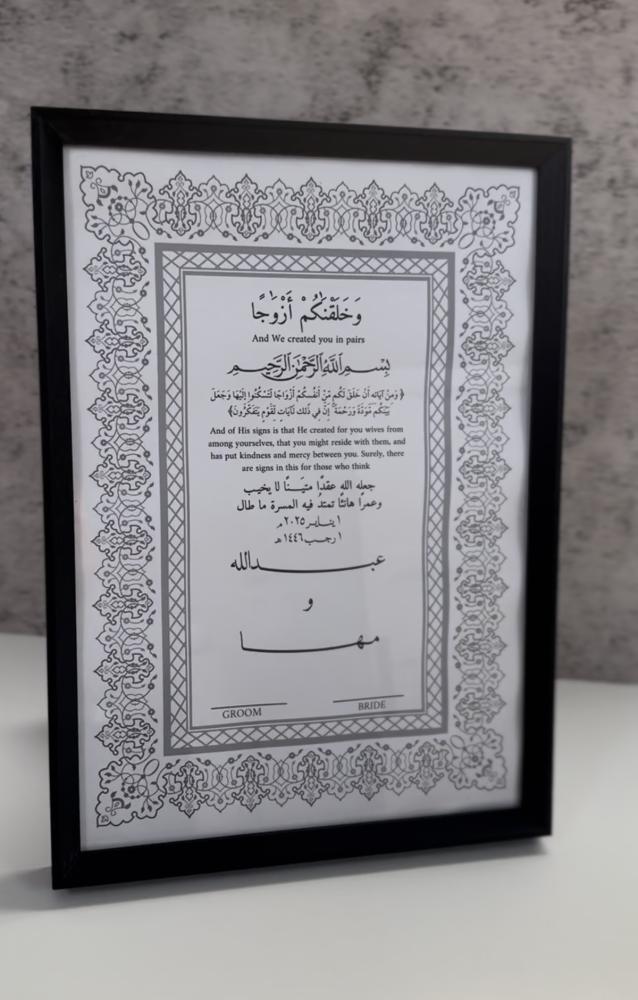 وَخَلَقْنَٰكُمْ أَزْوَٰجًا
And We created you in pairs
بِسْمِ اللَّهِ الرَّحْمَٰنِ الرَّحِيمِ
﴿ وَمِنْ آيَاتِهِ أَنْ خَلَقَ لَكُم مِّنْ أَنفُسِكُمْ أَزْوَاجًا لِّتَسْكُنُوا إِلَيْهَا وَجَعَلَ
بَيْنَكُم مَّوَدَّةً وَرَحْمَةً ۚ إِنَّ فِي ذَٰلِكَ لَآيَاتٍ لِّقَوْمٍ يَتَفَكَّرُونَ﴾
And of His signs is that He created for you wives from
among yourselves, that you might reside with them, and
has put kindness and mercy between you. Surely, there
are signs in this for those who think
جعله الله عقدًا متيـــنًا لا يخيب
وعمرًا هانئًا تمتدُ فيه المسرة ما طال
١ ينايـر ٢٠٢٥ م
١ رجـب ١٤٤٦ هـ
عبـــدالله
و
مهـــا
GROOM BRIDE